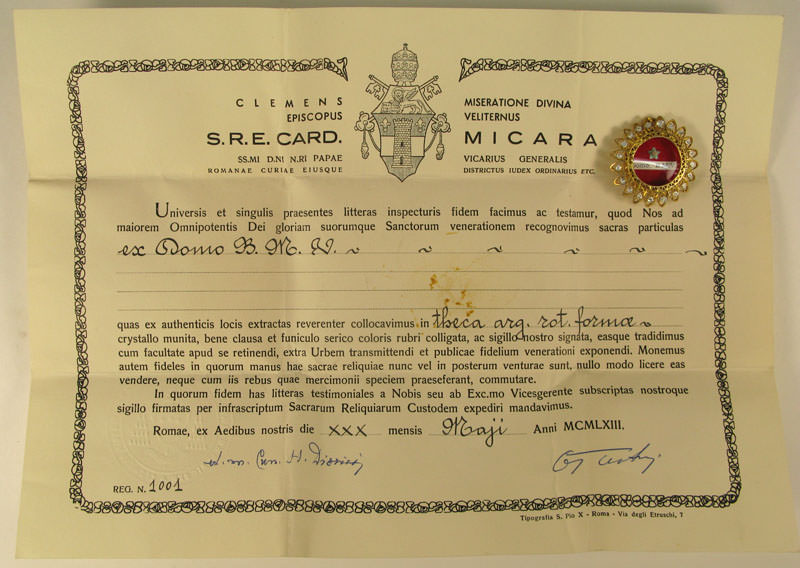 CLEMENS
EPISCOPUS
S.R.E. CARD.
SS.MI D.NI N.RI PAPAE
ROMANAE CURIAE EIUSQUE
MISERATIONE DIVINA
VELITERNUS
MICARA
VICARIUS GENERALIS
DISTRICTUS IUDEX ORDINARIUS ETC.
Universis et singulis praesentes litteras inspecturis fidem facimus ac testamur, quod Nos ad
maiorem Omnipotentis Dei gloriam suorumque Sanctorum venerationem recognovimus sacras particulas
ex Domo B. M. V.
quas ex authenticis locis extractas reverenter collocavimus in theca arg. rot. formæ
crystallo munita, bene clausa et funiculo serico coloris rubri colligata, ac sigillo nostro signata, easque tradidimus
cum facultate apud se retinendi, extra Urbem transmittendi et publicae fidelium venerationi exponendi. Monemus
autem fideles in quorum manus hae sacrae reliquiae nunc vel in posterum venturae sunt, nullo modo licere eas
vendere, neque cum iis rebus quae mercimonii speciem praeseferant, commutare.
In quorum fidem has litteras testimoniales a Nobis seu ab Exc.mo Vicesgerente subscriptas nostroque
sigillo firmatas per infrascriptum Sacrarum Reliquiarum Custodem expediri mandavimus.
Romae, ex Aedibus nostris die XXX mensis Maji Anni MCMLXIII.
REG. N. 1001
Tipografia S. Pio X - Roma - Via degli Etruschi, 7